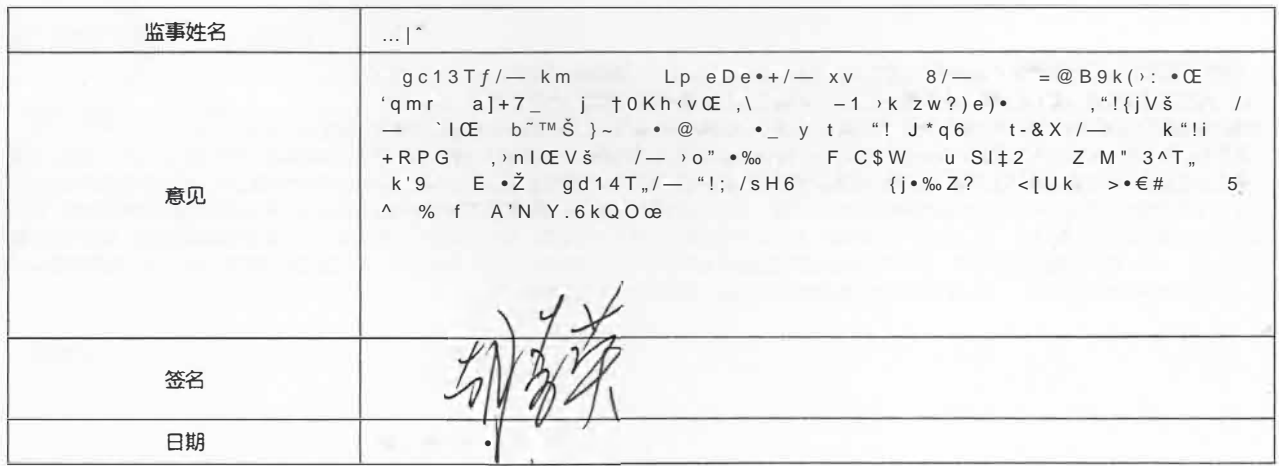 监事姓名 …|ˆ
gc13Tƒ/— km Lp eDe•+/— xv 8/— =@B9k(›: •Œ
‘qmr a]+7_ j †0Kh‹vŒ,\ –1 ›k zw?)e)• ,“!{jVš /
— `lŒ b˜™Š }~ •@ •_ y t “! h*q6 t-&X /— k“!i
+RPG ,›nlŒVš /— ›o” •‰ F C$W u Sl‡2 Z M" 3^T„
意见
k'9 E •Ž gd14T„/— “!; /sH6 {j•‰Z? <[Uk >•€# 5
^ % f A'N Y.6kQOœ
签名
日期